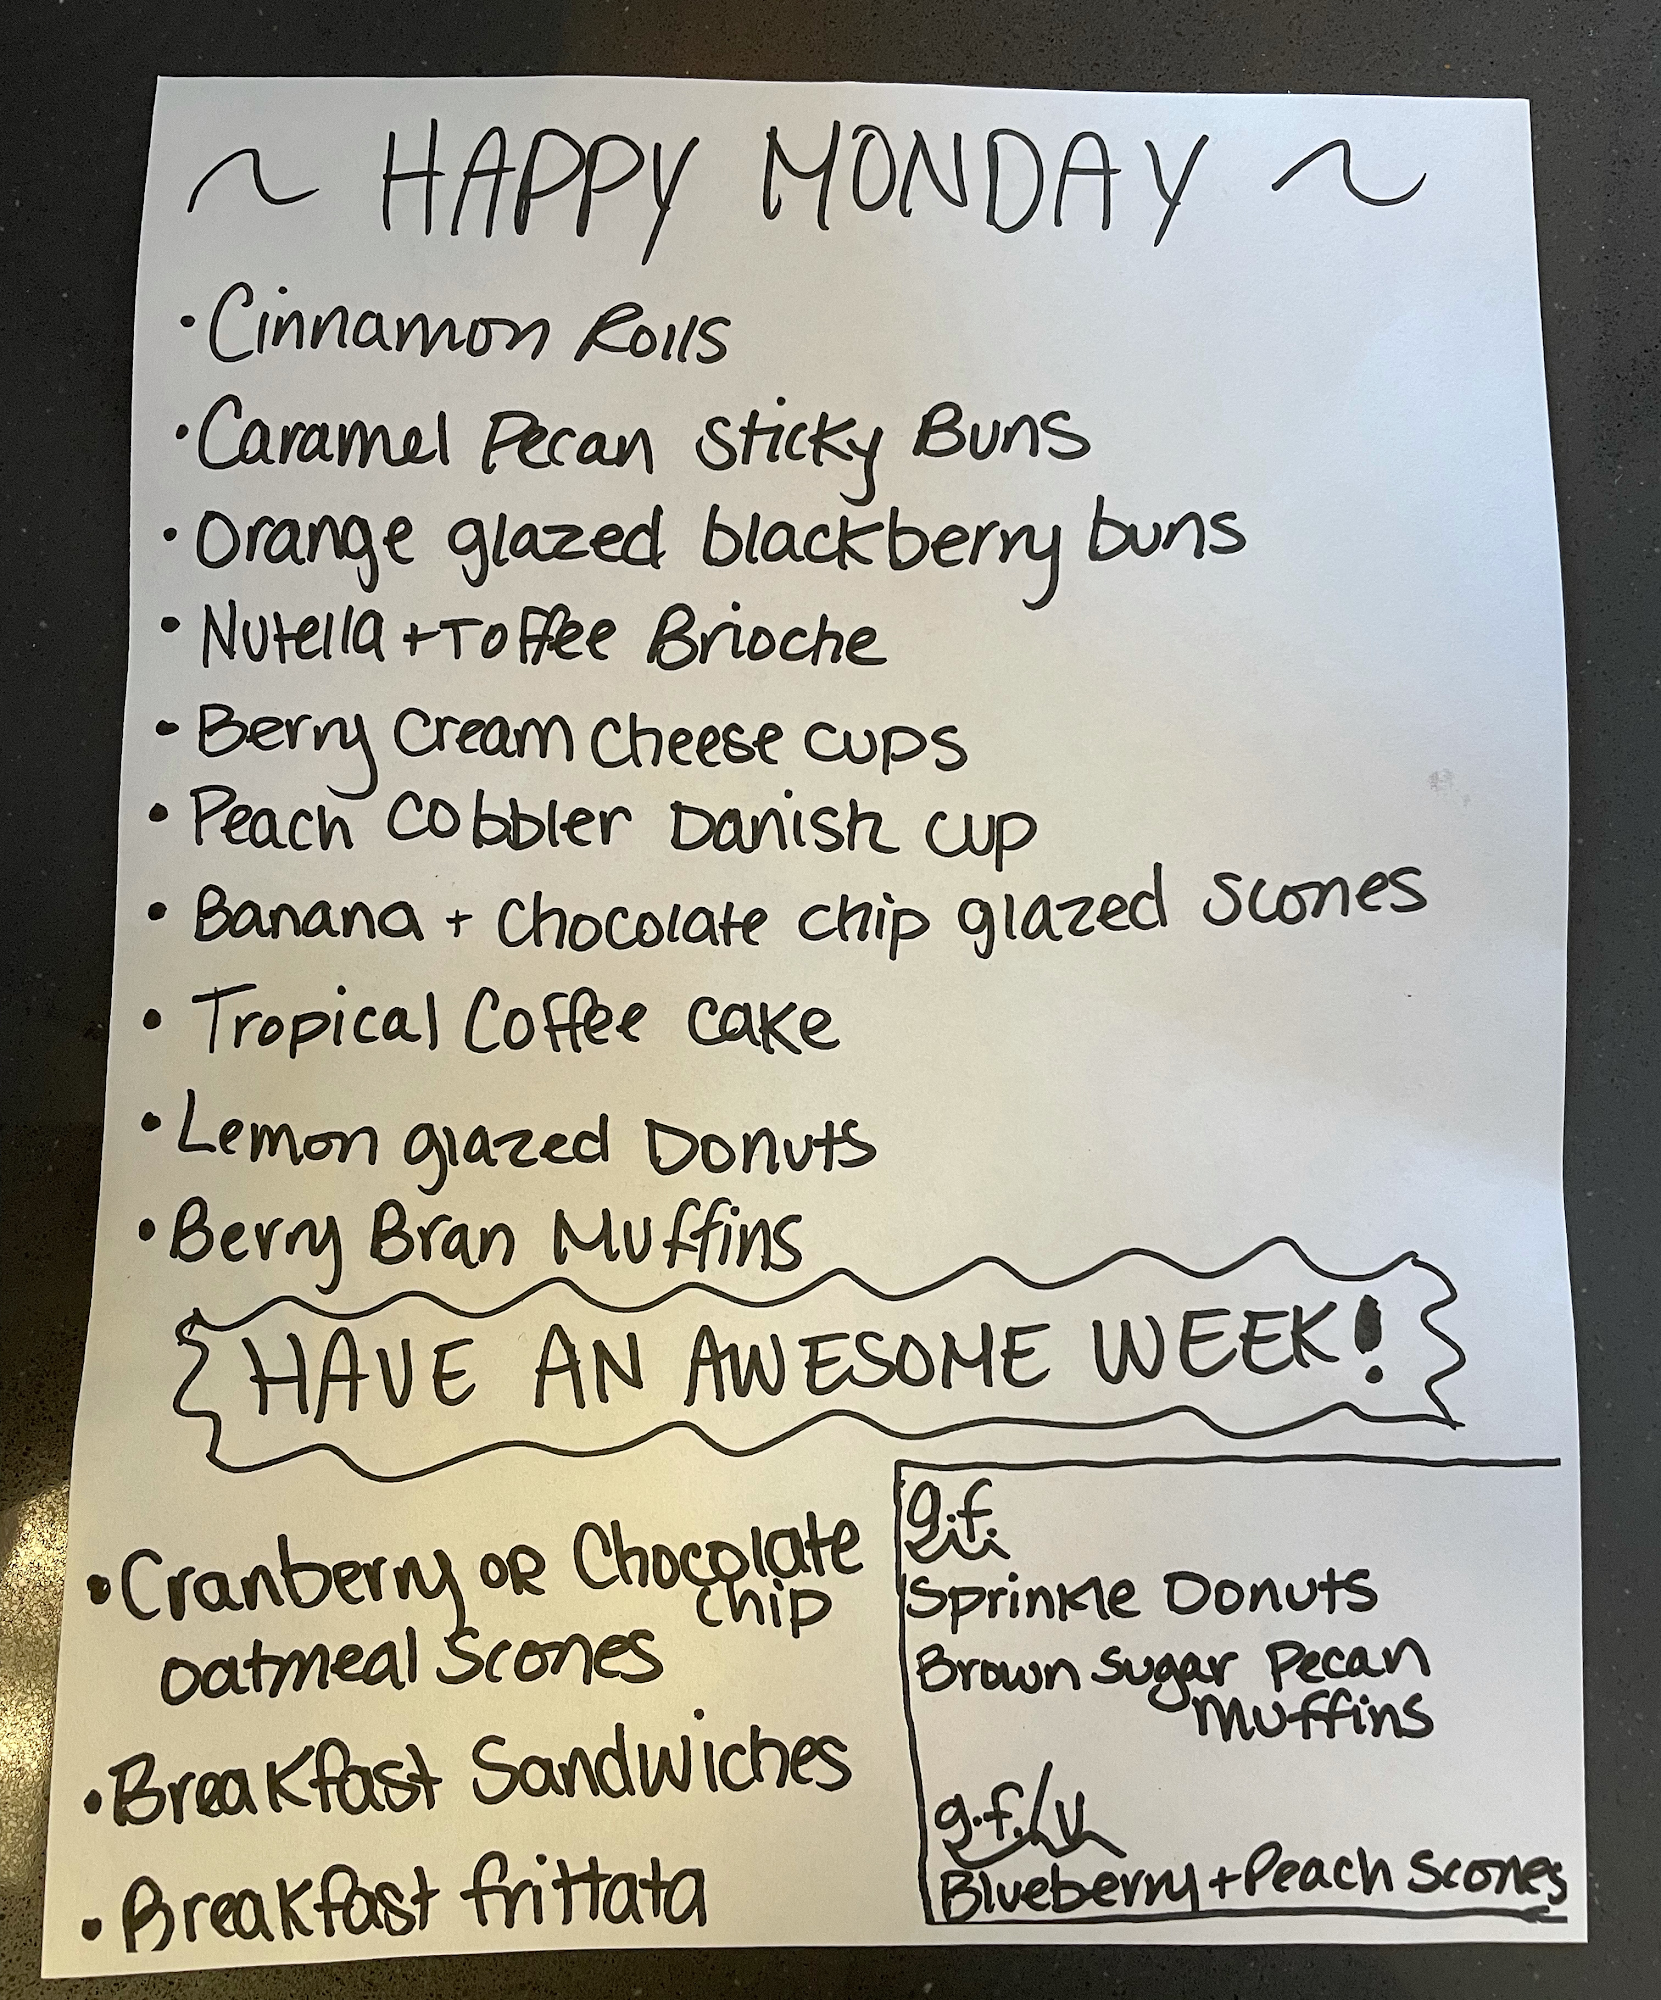 ~ HAPPY MONDAY ~
• Cinnamon Rolls
• Caramel Pecan Sticky Buns
• Orange glazed blackberry buns
• Nutella + Toffee Brioche
• Berry Cream Cheese cups
• Peach Cobbler Danish cup
• Banana + Chocolate chip glazed scones
• Tropical Coffee Cake
• Lemon glazed Donuts
• Berry Bran Muffins
HAVE AN AWESOME WEEK!
• Cranberry OR Chocolate
chip
oatmeal Scones
• Breakfast Sandwiches
• Breakfast frittata
g.f.
Sprinkle Donuts
Brown Sugar Pecan
Muffins
g.f./v
Blueberry + Peach Scones